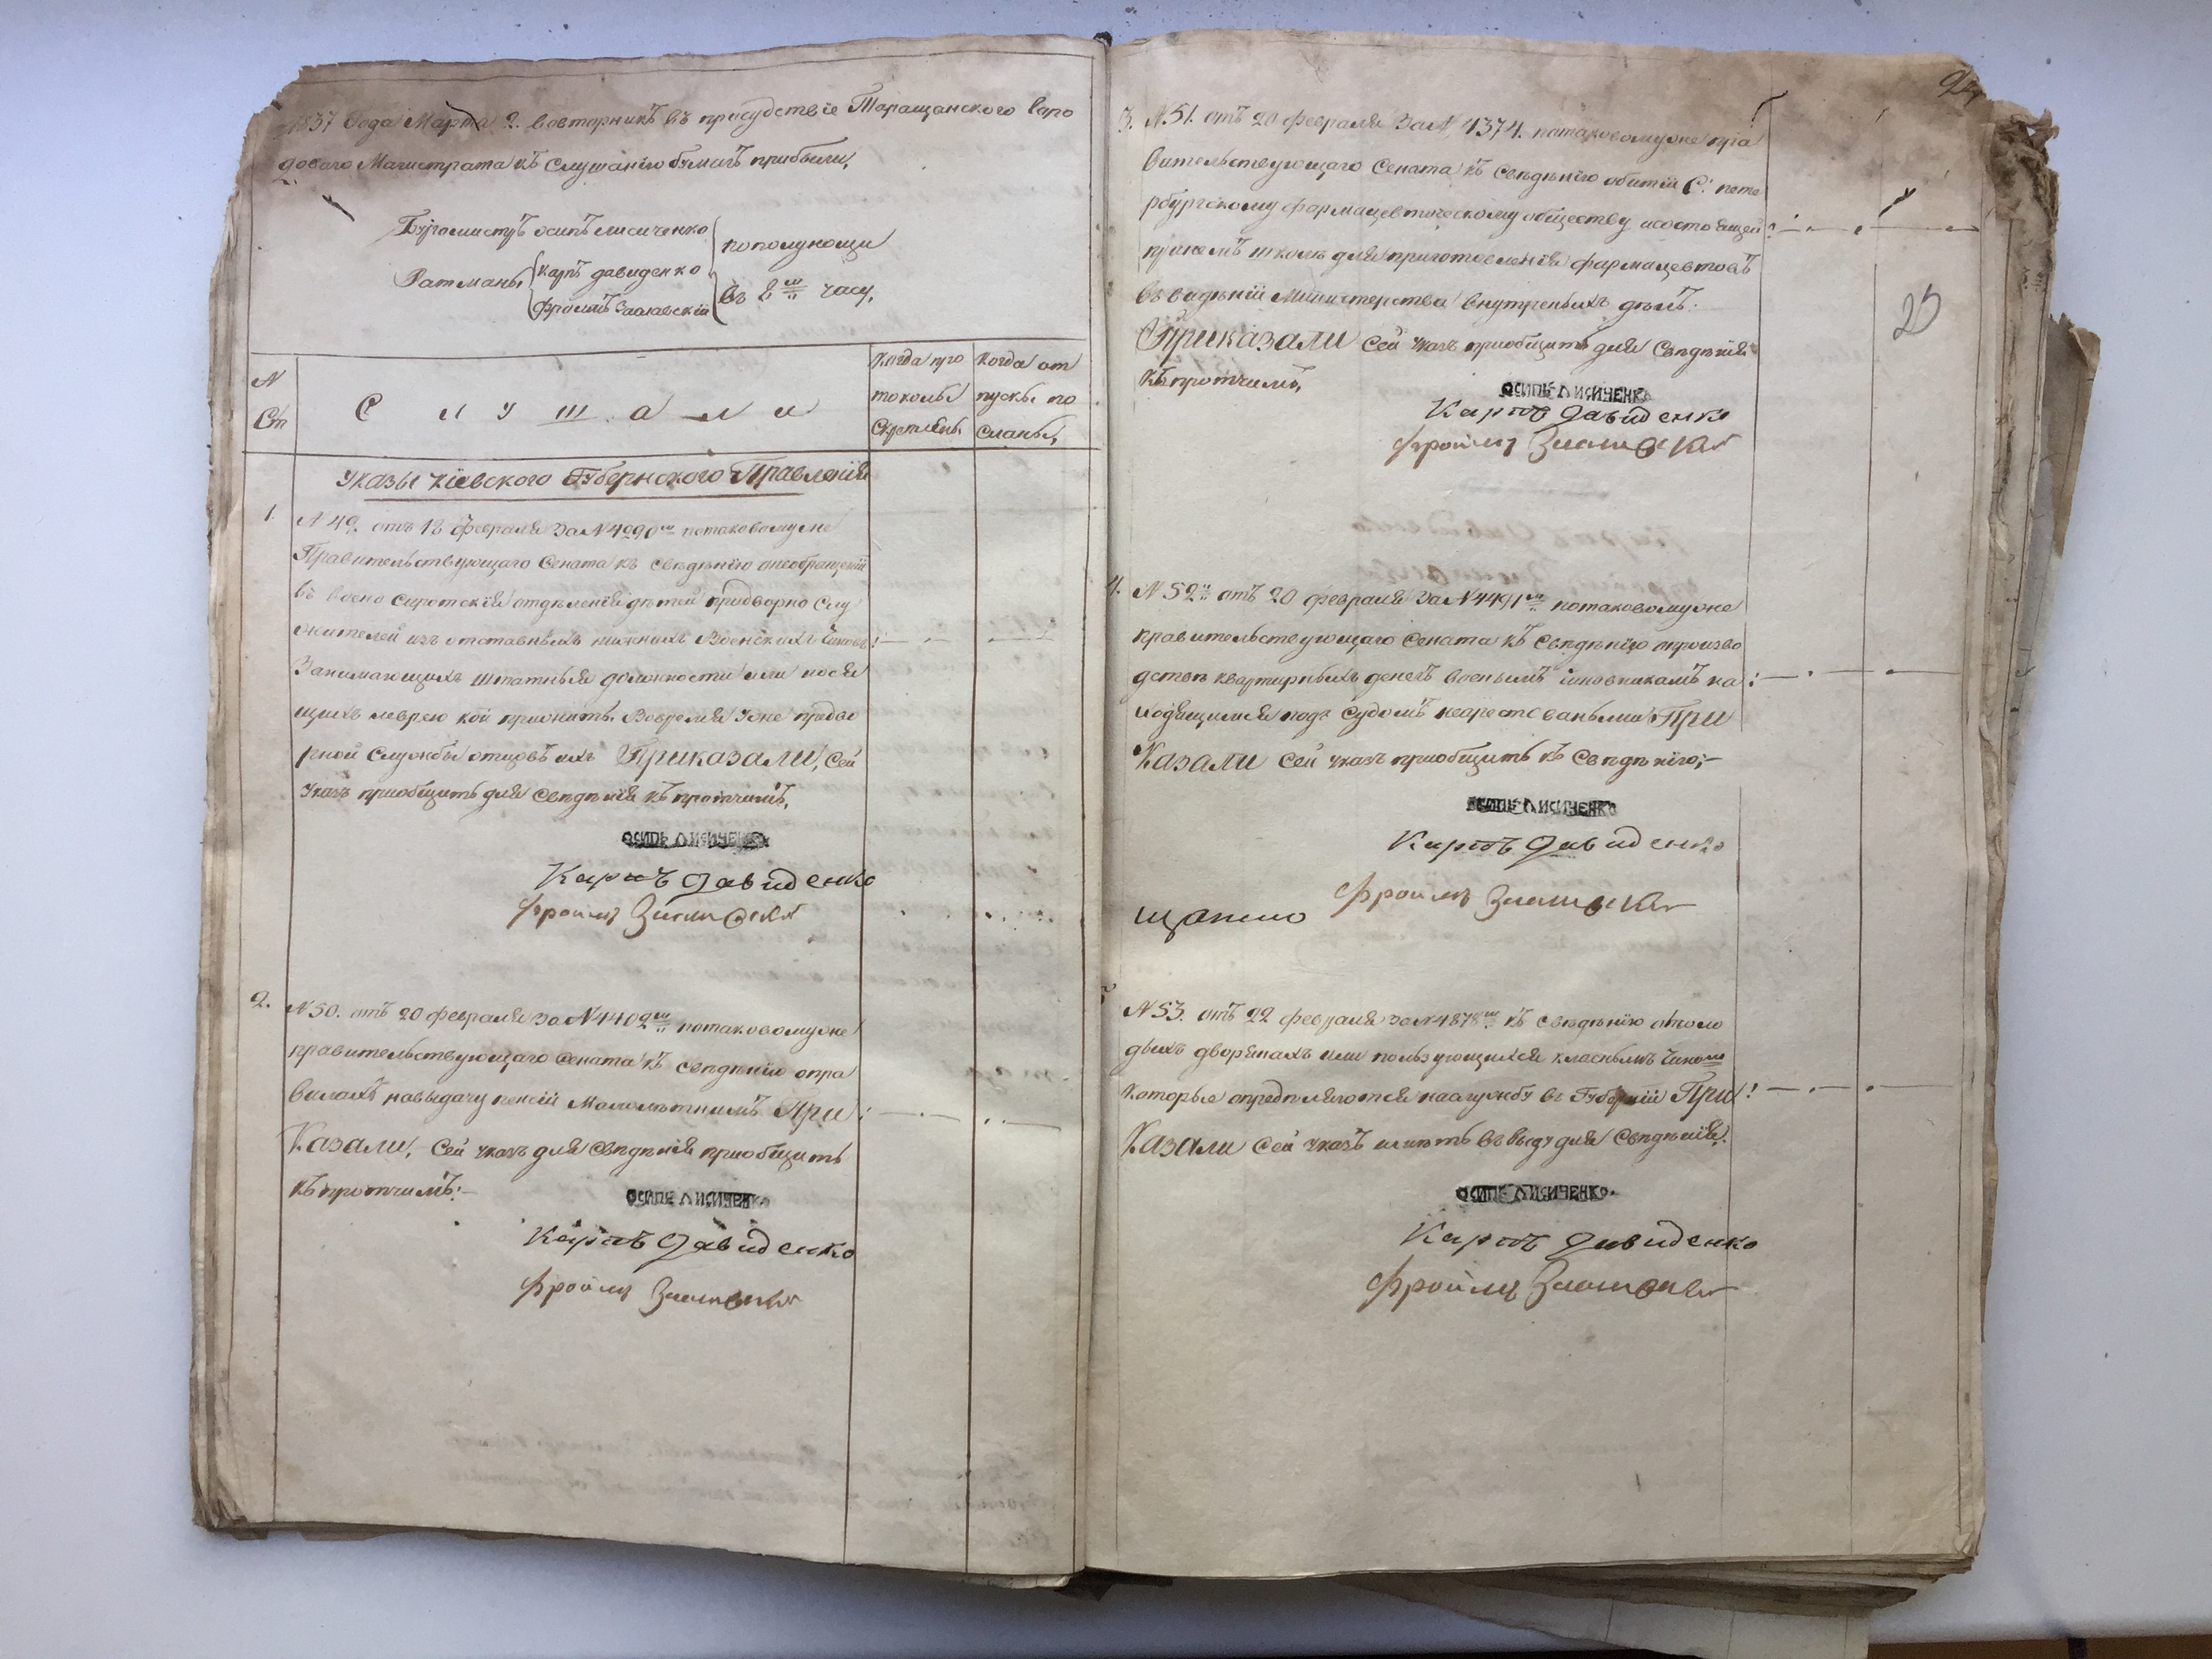 1837 Года Марта 2. вовторникъ въ присудствіе Таращанского Горо
дового Магистрата къ слушанію бумагъ прибыли,
Бургомистръ осипъ лисиченко
Ратманы карпъ давиденко
фроимъ
пополунощи
въ 8 часу,
№
Ст
С л у ш а л и
Когда про
токолы
Когда от
пуски по
сланы,
Указы Кіевского Губернского Правленія
1.
№ 49. отъ 18 февраля за № 4290 потаковомуже
Правительствующаго Сената къ сведенію онеобращеніи
въ воено сиротскія отделенія детей придворно слу
жителей изъ отставныхъ нижнихъ Военскихъ чиновъ
Занимающихъ штатныя должности или нося
щихъ леврею кои прижиты вовремя уже придво
рной службы отцовъ ихъ Приказали, Сей
Указъ приобщить для сведенія къ протчимъ,
ОСИПЪ ЛИСИЧЕНКО
Карпъ Давиденко
Фроимъ
2.
№ 50. отъ 20 февраля за № 4402 потаковомуже
правительствующаго Сената къ сведенію опра
вилахъ навыдачу пенсіи Малолетнимъ При
Казали, Сей указъ для сведенія приобщить
къ протчимъ:
ОСИПЪ ЛИСИЧЕНКО
Карпъ Давиденко
Фроимъ
25
3. № 51. отъ 20 февраля За № 4374. потаковомуже пра
вительствующаго Сената къ сведенію С: пете
рбургскому фармацевтическому обществу исостоящей
принемъ школе для приготовленія фармацевтовъ
въ веденіи Министерства внутренихъ делъ.
Приказали сей указъ приобщить для сведенія
къ протчимъ,
ОСИПЪ ЛИСИЧЕНКО
Карпъ Давиденко
Фроимъ
4. № 52 отъ 20 февраля За № 4491 потаковомуже
правительствующаго Сената къ сведенію опроизво
дстве квартирныхъ денегъ военымъ чиновникамъ на
ходящимся подъ судомъ неарестованымъ При
Казали сей указъ приобщить къ сведенію;
ОСИПЪ ЛИСИЧЕНКО
Карпъ Давиденко
Фроимъ
№ 53. отъ 22 февраля за № 4878 къ сведенію омоло
дыхъ дворянахъ или пользующихся класнымъ чиномъ
Которые определяются наслужбу въ Губерніи При
Казали Сей указъ иметь въ виду для сведенія.
ОСИПЪ ЛИСИЧЕНКО
Карпъ Давиденко
Фроимъ